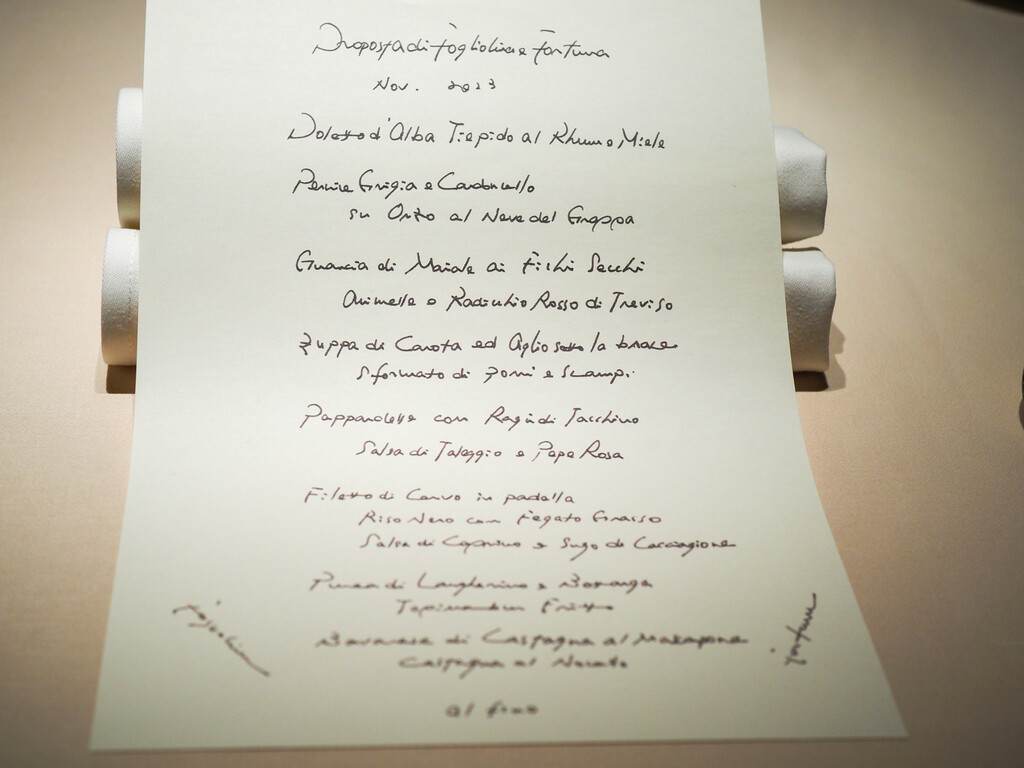 Proposta di fogliolina e fortuna
Nov. 2023
Dolcetto d'Alba Tiepido al Rhum e Miele
Pernice Grigia e Cardoncello
su Orzo al Neve del Grappa
Guancia di Maiale ai Fichi Secchi
Animelle e Radicchio Rosso di Treviso
Zuppa di Carota ed Aglio sotto la brace
Sformato di Porri e Scampi
Pappardelle con Ragù di Tacchino
Salsa di Taleggio e Pepe Rosa
Filetto di Cervo in padella
Riso Nero con Fegato Grasso
Salsa di Caprino e Sugo di Cacciagione
Purea di e
Topinambur Fritto
Bavarese di Castagna al Mascarpone
Castagna al
al fine
fogliolina
fortuna